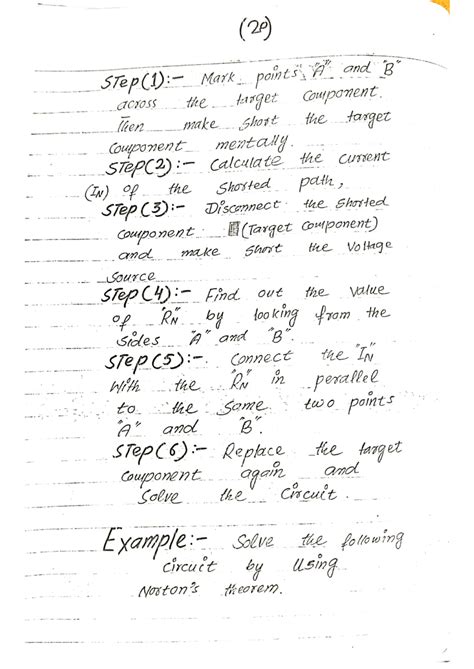 (20)
STep(1):- Mark points "A" and "B"
across the target component.
Then make short the target
Component mentally.
STEP(2):- Calculate the current
(IN) of the shorted path,
STEP(3):- Disconnect the shorted
component (Target component)
and make short the voltage
source
STEP(4):- Find out the value
of "RN" by looking from the
sides "A" and "B".
STEP(5):- Connect the "IN"
With the "RN" in perallel
to the same two points
"A" and "B".
STEP(6):- Replace the target
Component again and
Solve the Circuit.
Example:- Solve the following
circuit by using
Norton's theorem.